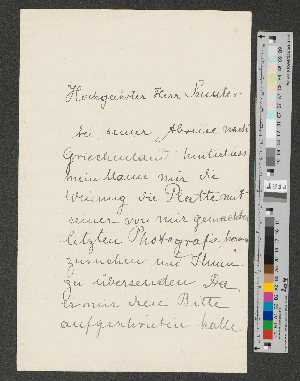 Hochgeehrter Herr
bei seiner Abreise nach
Griechenland hinterliess
mein Mann mir die
Weisung die Platte mit
seiner von mir gemachten
letzten Photografie heraus
zusuchen und Ihnen
zu übersenden Da
es mir diese Bitte